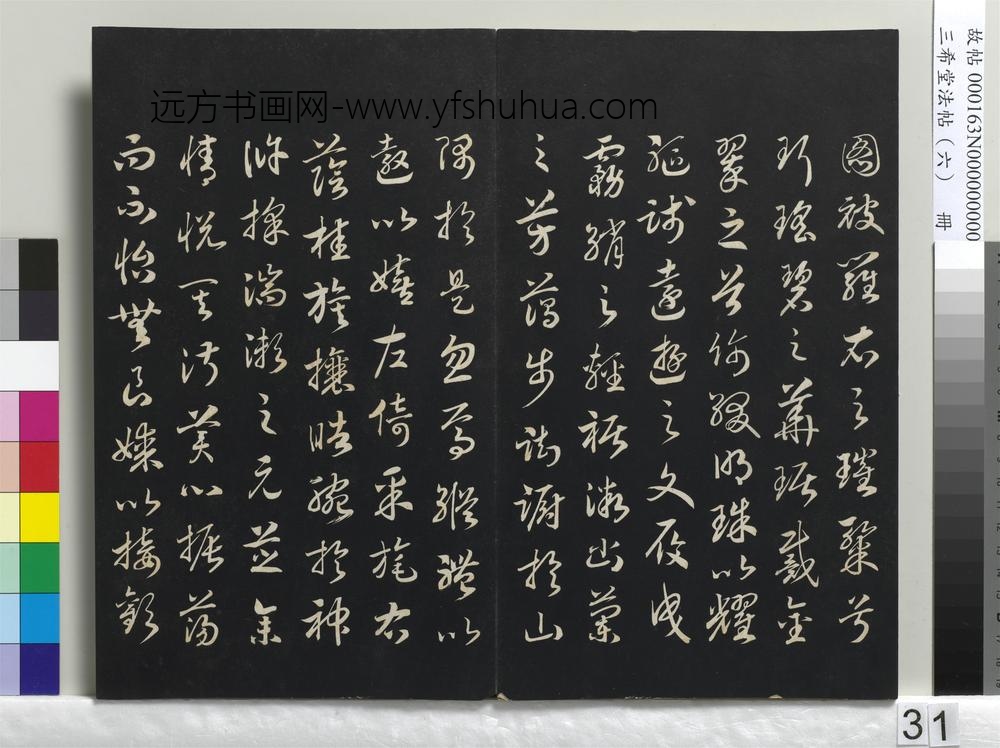 远方书画网-www.yfshuhua.com
圖被羅衣之璀粲兮
珥瑤碧之華琚戴金
翠之首飾綴明珠以耀
軀踐遠遊之文履曳
霧綃之輕裾微幽蘭
之芳藹步踟躕於山
隅於是忽焉縱體以
遨以嬉左倚采旄右
蔭桂旗攘皓腕於神
滸採湍瀨之元芝余
情悅其淑美心振蕩
而不怡無良媒以接歡
故帖 000163N000000000
三希堂法帖（六） 冊
31